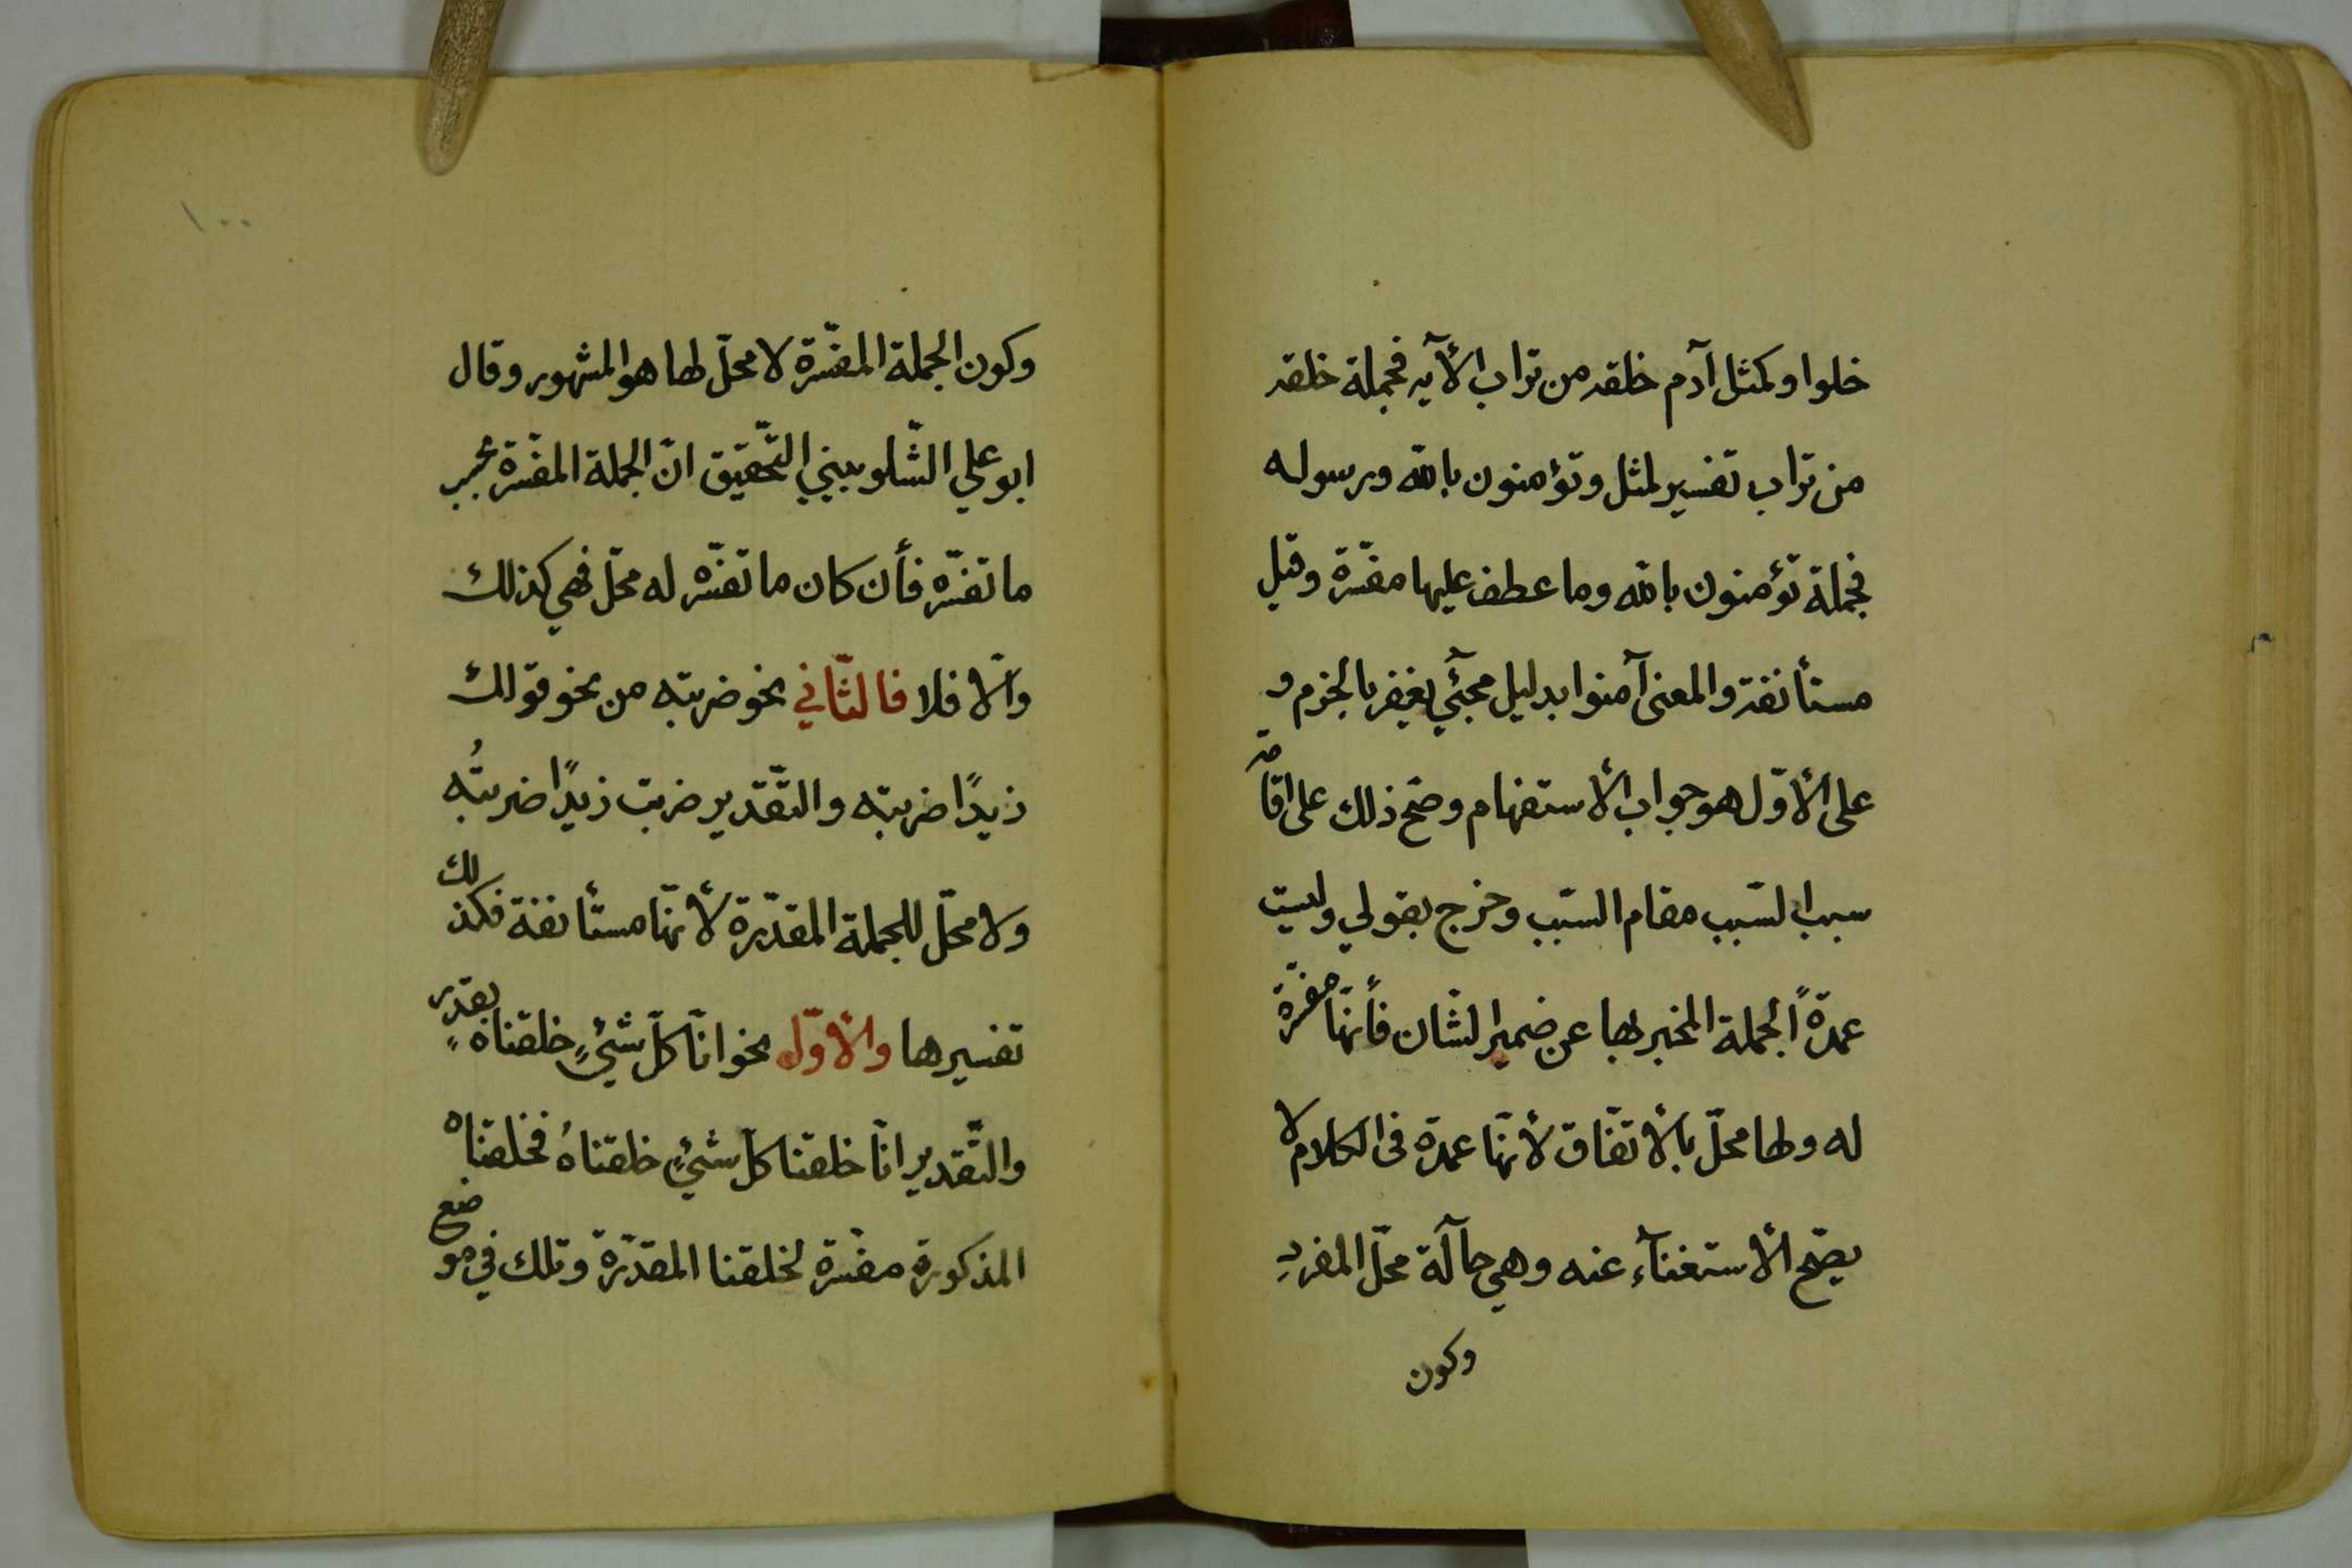 خلوا وكمثل آدم خلقه من تراب الأآيه فجملة خلقه
من تراب تفسير لمثل وتؤمنون بالله ورسوله
فجملة تؤمنون بالله وما عطف عليها مفسّرة وقيل
مستأنفة والمعنى آمنوا بدليل مجيٓئ يغفر بالجزم و
على الأوّل هو جواب الأستفهام وصحّ ذلك على اقامة
سبب السّبب مقام السّبب وخرج بقولي وليست
عمدةً الجملة المخبر بها عن ضمير الشّان فأنّها مفسّرة
له ولها محلّ بالأتفّاق لأنّها عمدة فى الكلام لا
يصّح الأستغنآء عنه وهي حآلّة محلّ المفردِ
وكون
١٠٠
وكون الجملة المفسّرة لا محلّ لها هو المشهور وقال
ابو علي الشّلوبيني التّحقيق انّ الجملة المفسّرة بحسب
ما تفسّره فأن كان ما تفسّره له محلّ فهي كذلك
والّا فلا فالثّاني نحو ضربته من نحو قولك
زيدًا ضربته والتّقدير ضربت زيدًا ضربتُه
ولا محلّ للجملة المقدّرة لأنّها مستأنفة فكذلك
تفسيرها والأوّل نحو انّا كلّ شيٍئ خلقناه بقدرٍ
والتّقدير انّا خلقنا كلّ شيئٍ خلقناهُ فخلقناه
المذكورة مفسّرة لخلقنا المقدّرة وتلك في موضع